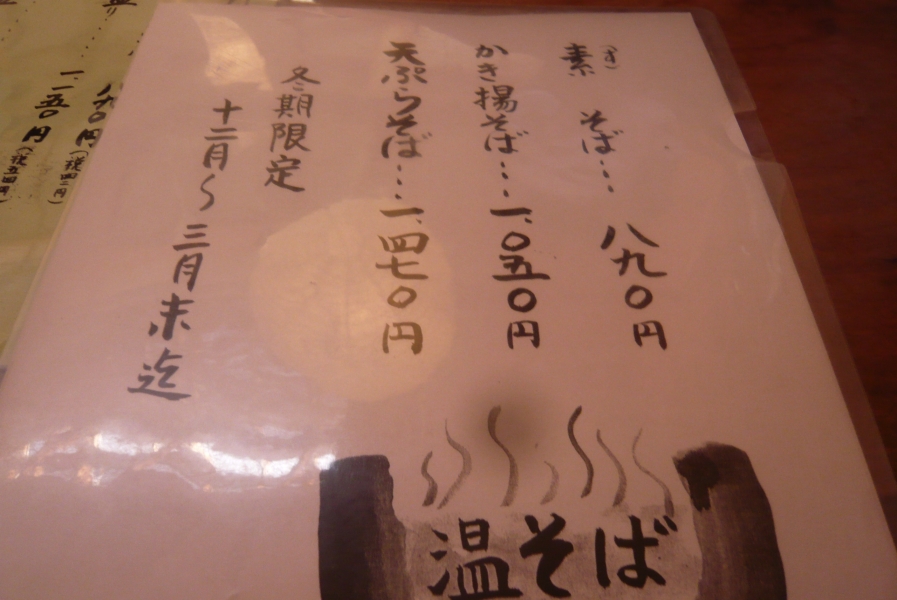 素(す) そば… 八九〇円
かき揚そば… 一、〇五〇円
天ぷらそば… 一、四七〇円
冬期限定
十二月〜三月末迄
温そば
八九〇円
一、一五〇円